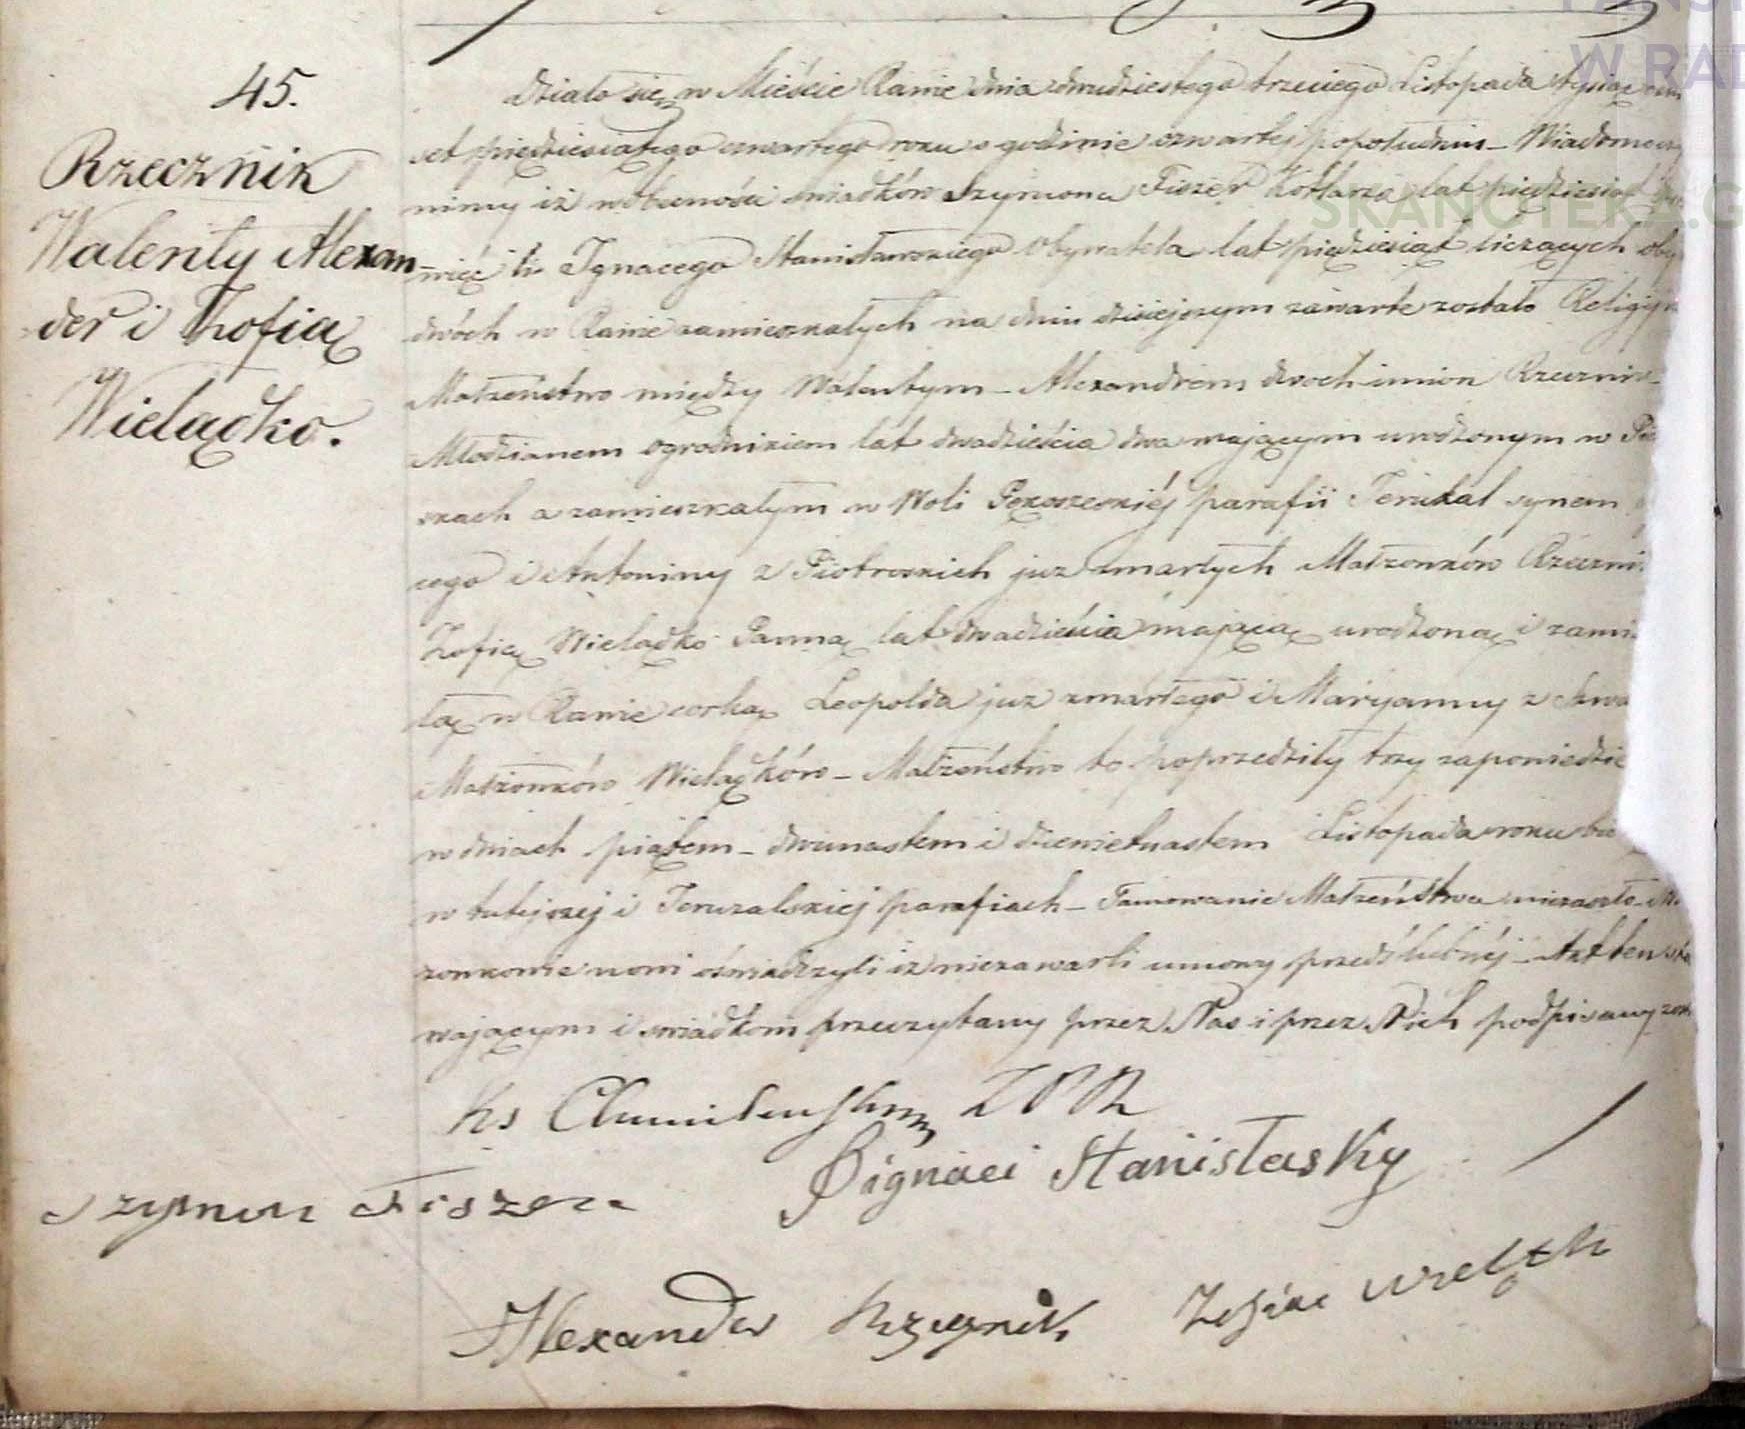 W RAD
SKANOTEKA.G
45.
Rzecznik
Walenty Alexan-
der i Zofia
Wielądko.
Działo się w Mieście Rawie dnia dwudziestego trzeciego Listopada tysiąc
set pięćdziesiątego czwartego roku o godzinie czwartej popołudniu – Wiadomo
nimy iż w obecności świadków Szymona Fiszer Kotlarza lat pięćdziesiąt
więć i Ignacego Stanisławskiego Obywatela lat pięćdziesiąt liczących oby
dwóch w Rawie zamieszkałych na dniu dzisiejszym zawarte zostało Religij
Małżeństwo między Walentym – Alexandrem dwoch imion Rzeczniк–
Młodzianem ogrodnikiem lat dwadzieścia dwa mającym urodzonym w
skach a zamieszkałym w Woli Pękoszeskiéj parafii Jeruzal synem
cego i Antoniny z Piotroskich juz zmarłych Małzonków Rzeczni
Zofią Wielądko Panną lat dwadzieścia mającą urodzoną i zamie
łą w Rawie corką Leopolda juz zmarłego i Maryanny z
Małżonków Wielądków – Małżeństwo to poprzedziły trzy zapowiedzie
w dniach piątem – dwunastem i dziewietnastem Listopada roku bie
w tutejszej i Jeruzalskiej parafiach – Tamowanie Małżeństwa niezaszło –
zonkowie nowi oświadczyli iz niezawarli umowy przedślubnéj – Akt ten sta
wającym i swiadkom przeczytany przez Nas i przez Nich podpisany zos
Ignaci Stanisłasky
Szymon Fiszer
Alexander Rzecznik Zofia